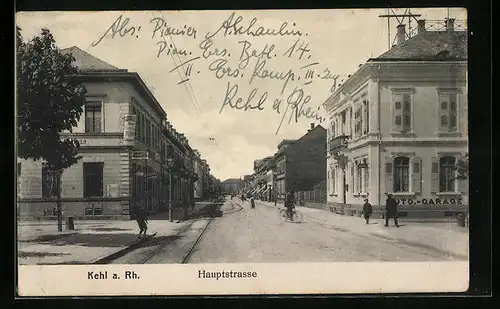 Abs. Pionier A. Schaulin.
Pion. Ers. Batl. 14
II. Ers. Komp. III. Zg
Kehl a Rhein
UTO.-GARAGE
Kehl a. Rh.
Hauptstrasse